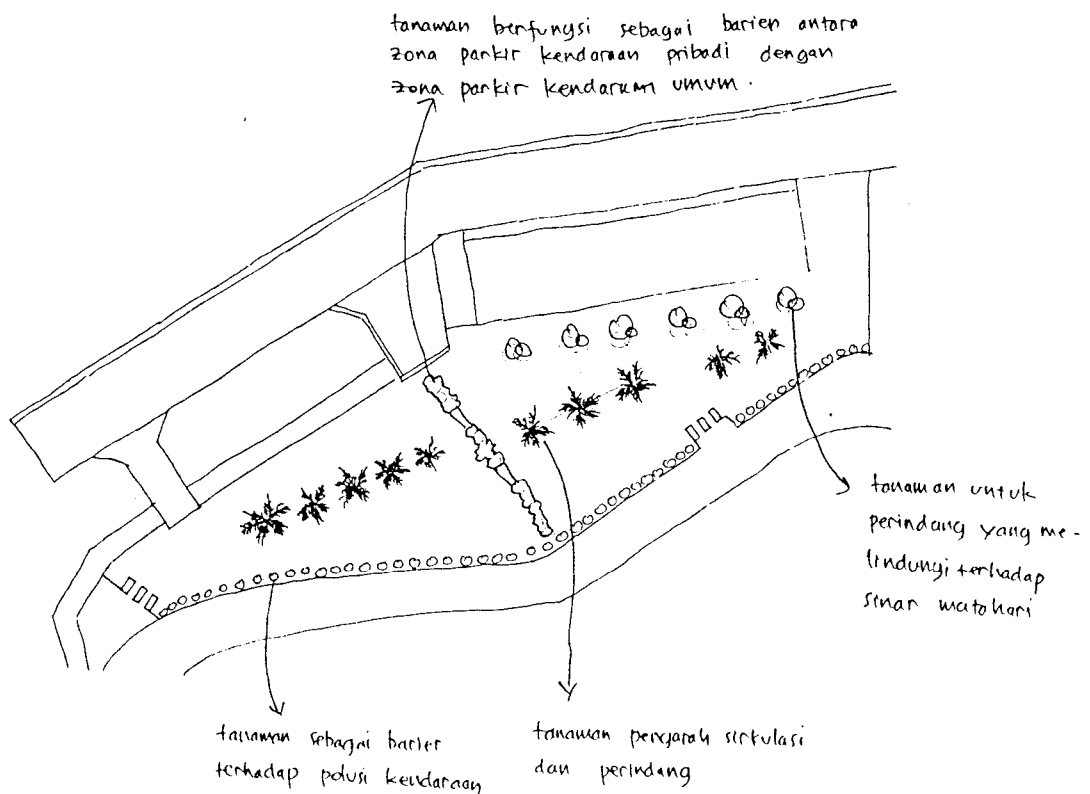 tanaman berfungsi sebagai barier antara
zona parkir kendaraan pribadi dengan
zona parkir kendaraan umum.
tanaman untuk
perindang yang me-
lindungi terhadap
sinar matahari
tanaman sebagai barier
terhadap polusi kendaraan
tanaman pengarah sirkulasi
dan perindang